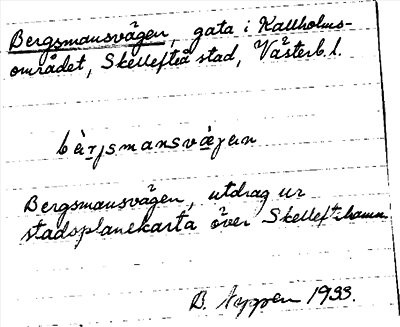 Bergsmansvägen, gata i Kallholms-
området, Skellefteå stad, Västerb. l.
bàrjsmansvägen
Bergsmansvägen, utdrag ur
stadsplanekarta över Skellefteham
B. Nygren 1933.